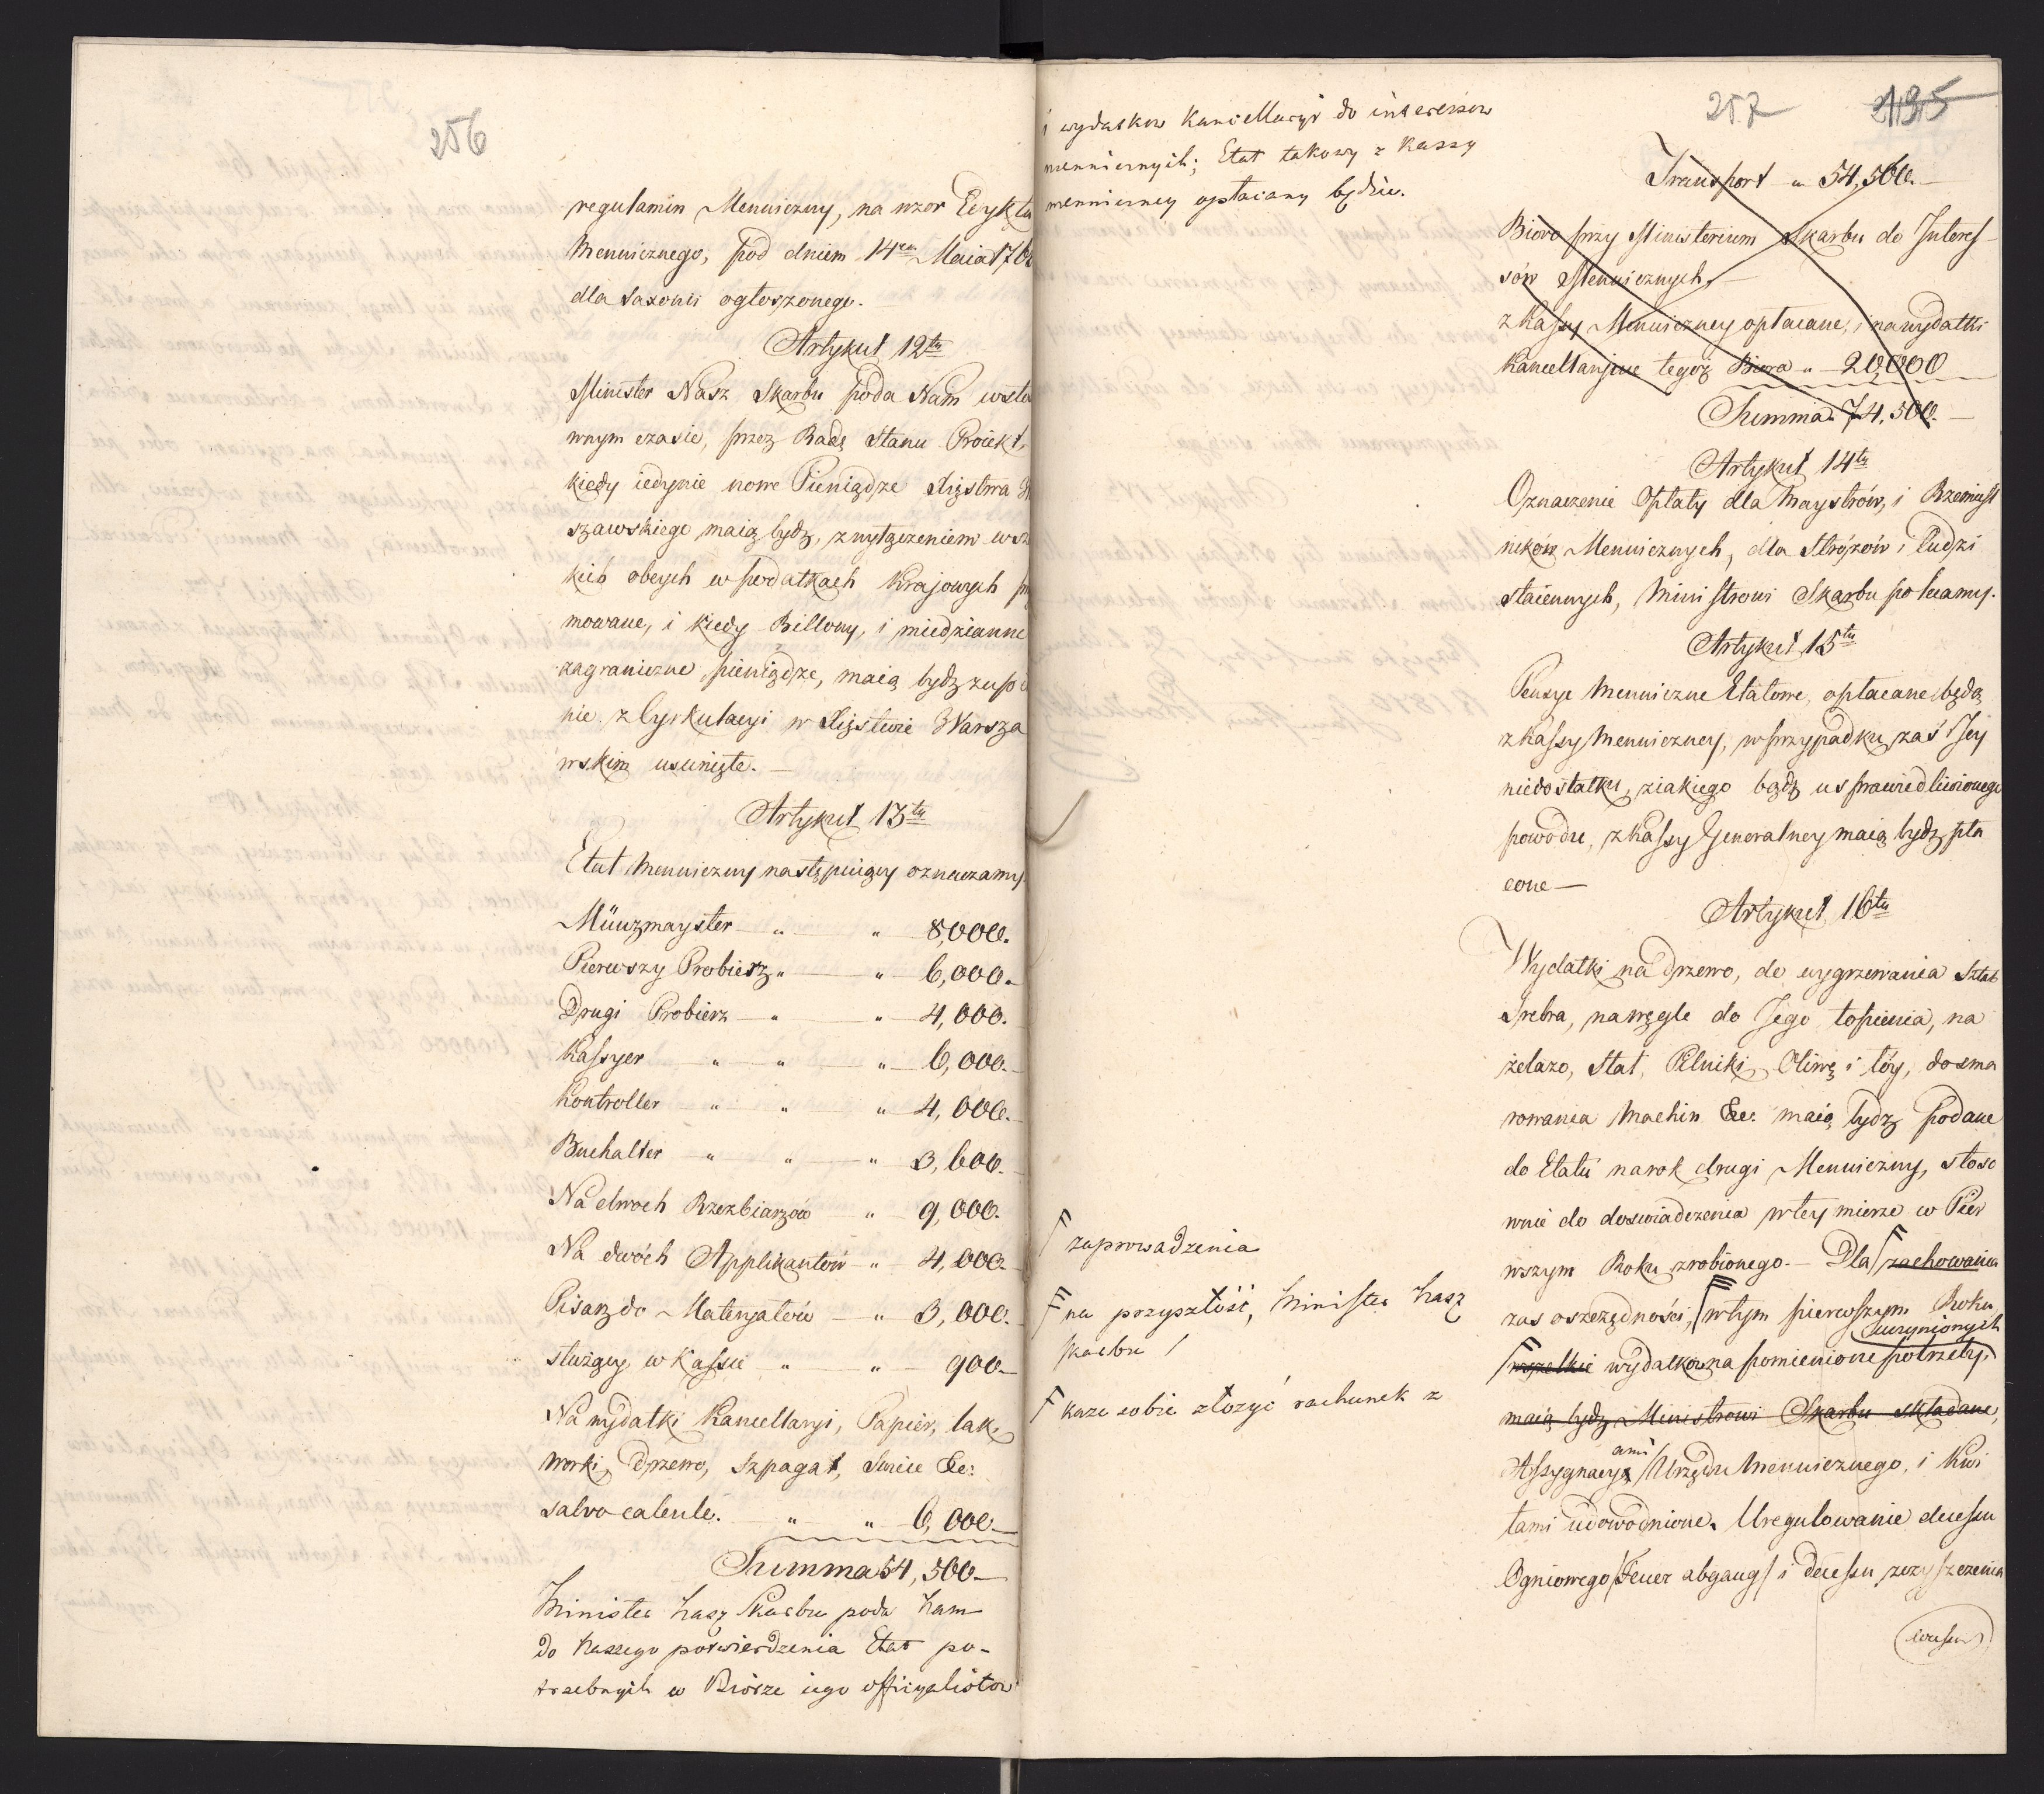 256
regulamin Menniczny, na wzor Edyktu
Mennicznego, pod dniem 14ym Maia 176
dla Saxonii ogłoszonego.
Artykuł 12ty
Minister Nasz Skarbu poda Nam wsto
wnym czasie, przez Radę Stanu Proiekt,
kiedy iedynie nowe Pieniądze Xięstwa W
szawskiego maią bydź, z wyłączeniem wsz
kich obcych w podatkach Krajowych pr
mowane, i kiedy Billony, i miedzianne
zagraniczne pieniądze, maią bydź zupe
nie z Cyrkulacyi w Xięstwie Warsza
wskim usunięte. —
Artykuł 13ty
Etat Menniczny następuiący oznaczamy.
Münzmayster — " " — 8,000.
Pierwszy Probierz " — " — 6,000. —
Drugi Probierz — " " — 4,000.
Kassyer — " — " — " — 6,000. —
Kontroller — " — " — " — 4,000. —
Buchalter — " " — " — 3,600. —
Na dwoch Rzezbiarzów " — 9,000.
Na dwóch Applikantów — " — 4,000. —
Pisarz do Materyałów — " — 3,000. —
służący w Kassie — " — " — 900 —
Na wydatki Kancellaryi, Papier, lak,
Worki, Drzewo, Szpagat, Swice &c:
salvo calculo. — " — " — 6,000 —
Summa 54,500 —
Minister Nasz Skarbu poda Nam
do Naszego potwierdzenia Etat po-
trzebnych w Biórze iego officyalistow
i wydatkow Kancellaryi do interessow
menniczných; Etat takowy z Kassy
menniczney opłacany będzie.
F zaprowadzenia
F na przyszłość, Minister Nasz
Skarbu /
F kaze sobie złozyć rachunek z
257 195
Transport — " 54,500. —
Bioro przy Ministerium Skarbu do Interes-
sów Mennicznych, —
z Kassy Menniczney opłacane, i na wydatki
Kancellaryine tegoż Biora " — 20,000
Summa 74,500. —
Artykuł 14ty
Oznaczenie Opłaty dla Maystrów, i Rzemieśl
ników Mennicznych, dla Stróżów i Ludzi
staiennych, Ministrowi Skarbu polecamy.
Artykuł 15ty
Pensye Menniczne Etatowe, opłacane będą
z Kassy Menniczney, w przypadku zaś Jey
niedostatku, z iakiego bądź usprawiedliwionego
powodu, z Kassy Generalney maią bydź pła
cone —
Artykuł 16ty
Wydatki na Drzewo, do wygrzewania Sztab
Srebra, na węgle do Jego topienia, na
żelazo, Stal, Pilniki, Oliwę i łóy, do sma
rowania Machin &c: maią bydź podane
do Etatu na rok drugi Menniczny, stoso
wnie do doswiadczenia w tey mierze w Pier
wszym Roku zrobionego. — Dla F zachowania
zas oszczędności, w tym pierwszym Roku
uczynionych
wszelkie wydatków na pomienione potrzeby,
maią bydź Ministrowi Skarbu składane,
ami
Assygnacya Urzędu Mennicznego, i Kwi
tami udowodnione. Uregulowanie decessu
Ogniowego /Feuer abgang/ i decessu z czyszczenia